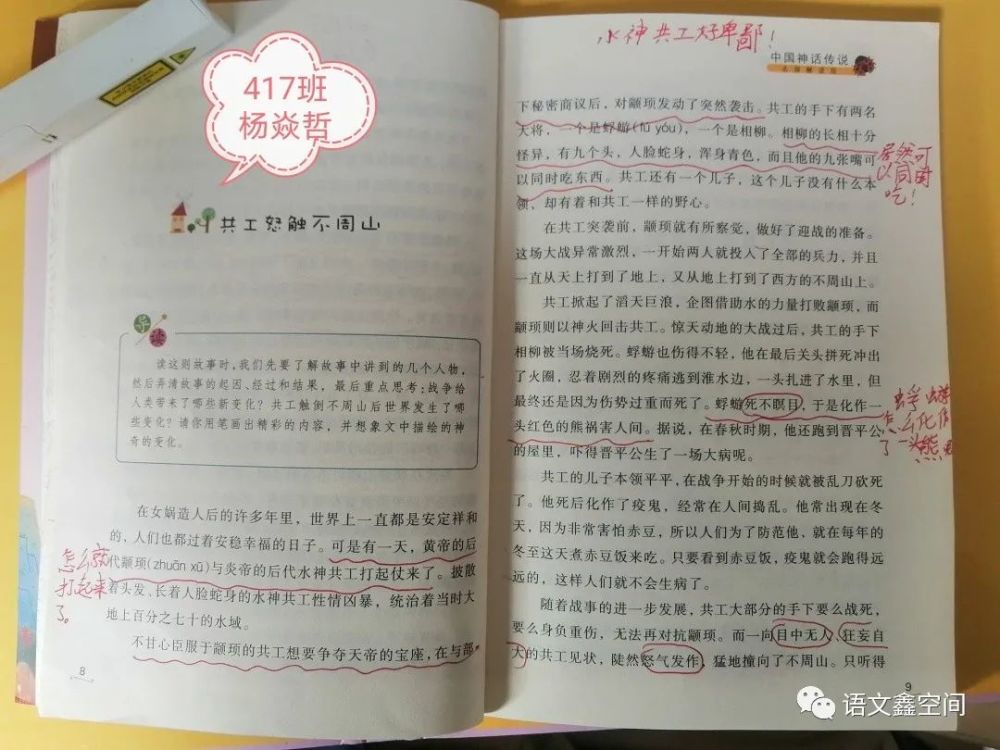 417班
杨焱哲
共工怒触不周山
导读
读这则故事时，我们先要了解故事中讲到的几个人物，
然后弄清故事的起因、经过和结果，最后重点思考：战争给
人类带来了哪些新变化？共工触倒不周山后世界发生了哪
些变化？请你用笔画出精彩的内容，并想象文中描绘的神
奇的变化。
在女娲造人后的许多年里，世界上一直都是安定祥和
的，人们也都过着安稳幸福的日子。可是有一天，黄帝的后
代颛顼(zhuān xū)与炎帝的后代水神共工打起仗来了。披散
着头发、长着人脸蛇身的水神共工性情凶暴，统治着当时大
地上百分之七十的水域。
不甘心臣服于颛顼的共工想要争夺天帝的宝座，在与部
怎么就
打起来
了。
8
水神共工好卑鄙！
中国神话传说
下秘密商议后，对颛顼发动了突然袭击。共工的手下有两名
大将，一个是蜉蝣(fú yóu)，一个是相柳。相柳的长相十分
怪异，有九个头，人脸蛇身，浑身青色，而且他的九张嘴可
以同时吃东西。共工还有一个儿子，这个儿子没有什么本
领，却有着和共工一样的野心。
居然可
以同时
吃！
在共工突袭前，颛顼就有所察觉，做好了迎战的准备。
这场大战异常激烈，一开始两人就投入了全部的兵力，并且
一直从天上打到了地上，又从地上打到了西方的不周山上。
共工掀起了滔天巨浪，企图借助水的力量打败颛顼，而
颛顼则以神火回击共工。惊天动地的大战过后，共工的手下
相柳被当场烧死。蜉蝣也伤得不轻，他在最后关头拼死冲出
了火圈，忍着剧烈的疼痛逃到淮水边，一头扎进了水里，但
最终还是因为伤势过重而死了。蜉蝣死不瞑目，于是化作一
头红色的熊祸害人间。据说，在春秋时期，他还跑到晋平公
的屋里，吓得晋平公生了一场大病呢。
蜉蝣
怎么化作
了一头熊
共工的儿子本领平平，在战争开始的时候就被乱刀砍死
了。他死后化作了疫鬼，经常在人间捣乱。他常出现在冬
天，因为非常害怕赤豆，所以人们为了防范他，就在每年的
冬至这天煮赤豆饭来吃。只要看到赤豆饭，疫鬼就会跑得远
远的，这样人们就不会生病了。
随着战事的进一步发展，共工大部分的手下要么战死，
要么身负重伤，无法再对抗颛顼。而一向目中无人、狂妄自
大的共工见状，陡然怒气发作，猛地撞向了不周山。只听得
9
语文鑫空间